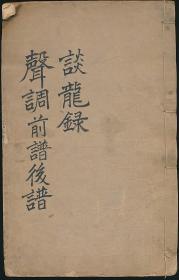 談龍録
聲調前譜後譜